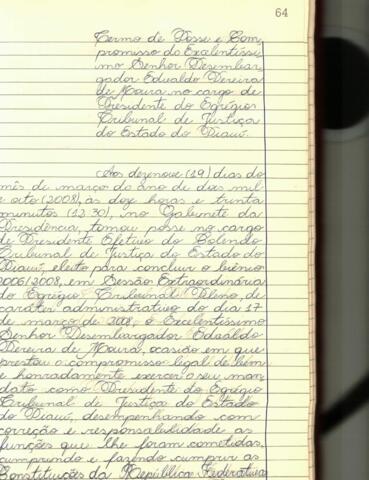 64
Termo de Posse e Com
promisso do Excelentíssi
mo Senhor Desembar
gador Edvaldo Pereira
de Moura no cargo de
Presidente do Egrégio
Tribunal de Justiça
do Estado do Piauí.
Aos dezenove (19) dias do
mês de março do ano de dois mil
e oito (2008), às doze horas e trinta
minutos (12:30), no Gabinete da
Presidência, tomou posse no cargo
de Presidente Efetivo do Colendo
Tribunal de Justiça do Estado do
Piauí, eleito para concluir o biênio
2006/2008, em Sessão Extraordinária
do Egrégio Tribunal Pleno, de
caráter administrativo do dia 17
de março de 2008, o Excelentíssimo
Senhor Desembargador Edvaldo
Pereira de Moura, ocasião em que
prestou o compromisso legal de bem
e honradamente exercer o seu man
dato como Presidente do Egrégio
Tribunal de Justiça do Estado
do Piauí, desempenhando com
correção e responsabilidade as
funções que lhe foram cometidas,
cumprindo e fazendo cumprir as
Constituições da República Federativa